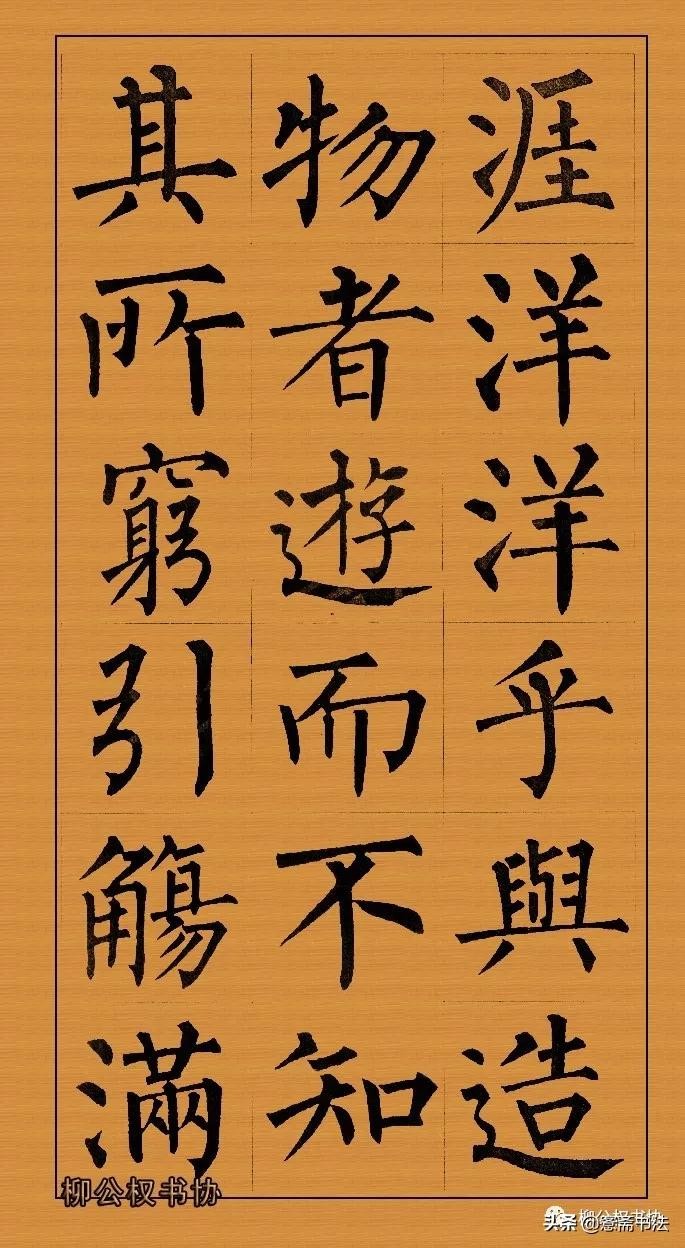 涯洋洋乎與造
物者遊而不知
其所窮引觴滿
柳公权书协
柳公权书协
头条 @意斋书法